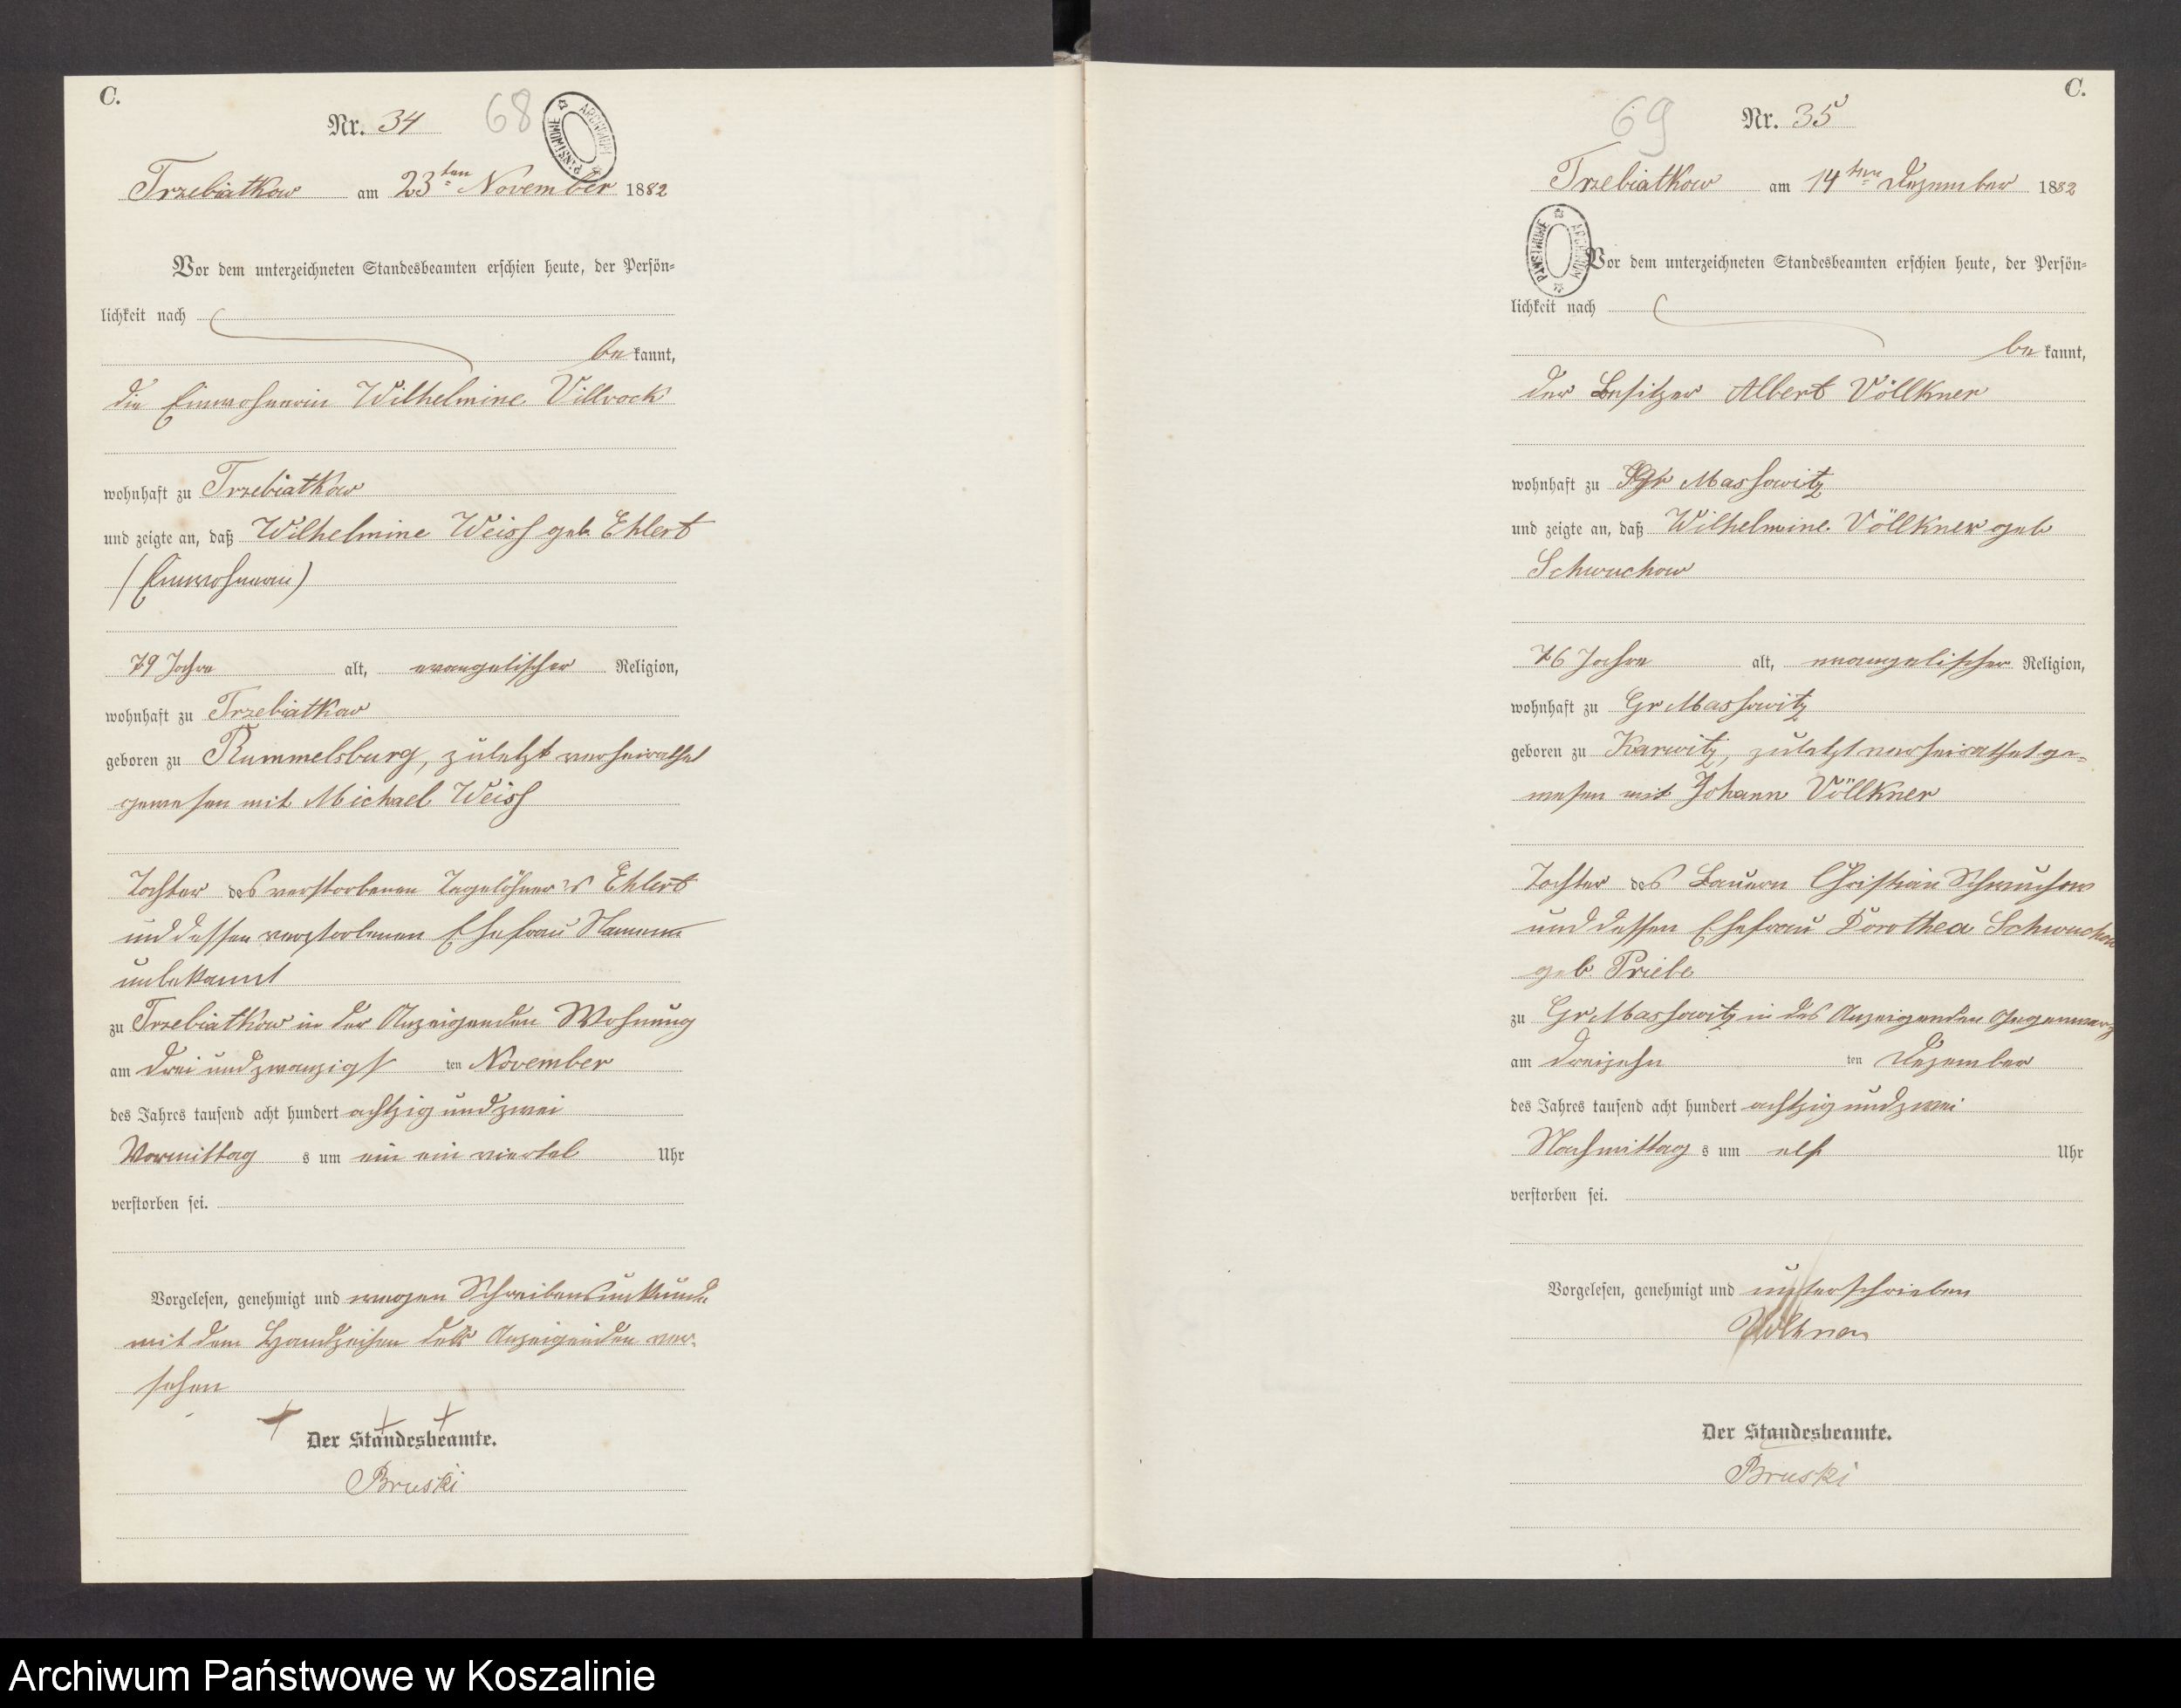 C.
Nr. 34
68
ARCHIWUM PAŃSTWOWE
Trzebiatkow am 23ten November 1882
Vor dem unterzeichneten Standesbeamten erschien heute, der Persön-
lichkeit nach
be kannt,
die Einwohnerin Wilhelmine Villrock
wohnhaft zu Trzebiatkow
und zeigte an, daß Wilhelmine Weiss geb Ehlert
(Einwohnerin)
79 Jahre alt, evangelischer Religion,
wohnhaft zu Trzebiatkow
geboren zu Rummelsburg, zuletzt verheirathet
gewesen mit Michael Weiss
Tochter des verstorbenen Tagelöhner's Ehlert
und dessen verstorbenen Ehefrau Namens
unbekannt
zu Trzebiatkow in der Anzeigenden Wohnung
am drei und zwanzigst ten November
des Jahres tausend acht hundert achtzig und zwei
Vormittag s um ein ein viertel Uhr
verstorben sei.
Vorgelesen, genehmigt und wegen Schreibensunkunde
mit dem Handzeichen der Anzeigenden ver-
sehen
+ + +
Der Standesbeamte.
Bruski
C.
69
Nr. 35
Trzebiatkow am 14ten Dezember 1882
ARCHIWUM PAŃSTWOWE
Vor dem unterzeichneten Standesbeamten erschien heute, der Persön-
lichkeit nach
be kannt,
der Besitzer Albert Völlkner
wohnhaft zu Gr Massowitz
und zeigte an, daß Wilhelmine Völlkner geb
Schwuchow
76 Jahre alt, evangelischer Religion,
wohnhaft zu Gr Massowitz
geboren zu Karwitz, zuletzt verheirathet ge-
wesen mit Johann Völlkner
Tochter des Bauern Christian Schwuchow
und dessen Ehefrau Dorothea Schwuchow
geb. Priebe
zu Gr. Massowitz in des Anzeigenden Gegenwart
am dreizehn ten Dezember
des Jahres tausend acht hundert achtzig und zwei
Nachmittag s um elf Uhr
verstorben sei.
Vorgelesen, genehmigt und unterschrieben
Völkner
Der Standesbeamte.
Bruski
Archiwum Państwowe w Koszalinie